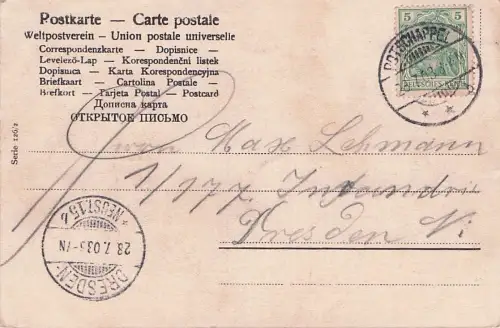 Postkarte — Carte postale
Weltpostverein — Union postale universelle
Correspondenzkarte — Dopisnice —
Levelező-Lap — Korespondenční listek
Dopisnica — Karta Korespondencyjna
Briefkaart — Cartolina Postale —
Brefkort — Tarjeta Postal — Postcard
Дописна карта
ОТКРЫТОЕ ПИСЬМО
Serie 126/2
5 5
POTSCHAPPEL
Max Lehmann
1/177 Infanterie
Dresden N.
NEUST. 15
28.7.03.
DRESDEN-